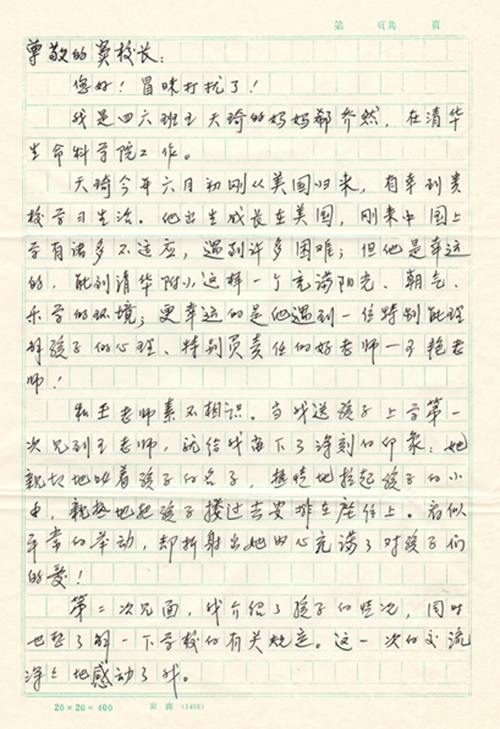 第 頁共 頁
尊敬的窦校长:
您好!冒昧打扰了!
我是四六班王天琦的妈妈郗乔然,在清华
生命科学院工作。
天琦今年六月初刚从美国归来,有幸到贵
校学习生活。他出生成长在美国,刚来中国上
学有诸多不适应,遇到许多困难;但他是幸运
的,能到清华附小这样一个充满阳光、朝气、
乐学的环境;更幸运的是他遇到一位特别能理
解孩子的心理、特别负责任的好老师—王艳老
师!
和王老师素不相识。当我送孩子上学第一
次见到王老师,就给我留下了深刻的印象:她
亲切地叫着孩子的名子,热情地拉起孩子的小
手,亲热地把孩子搂过去安排在座位上。看似
平常的举动,却折射出她内心充满了对孩子们
的爱!
第二次见面,我介绍了孩子的情况,同时
也想了解一下学校的有关规定。这一次的交流
深深地感动了我。
20×20=400 京商 (1430)